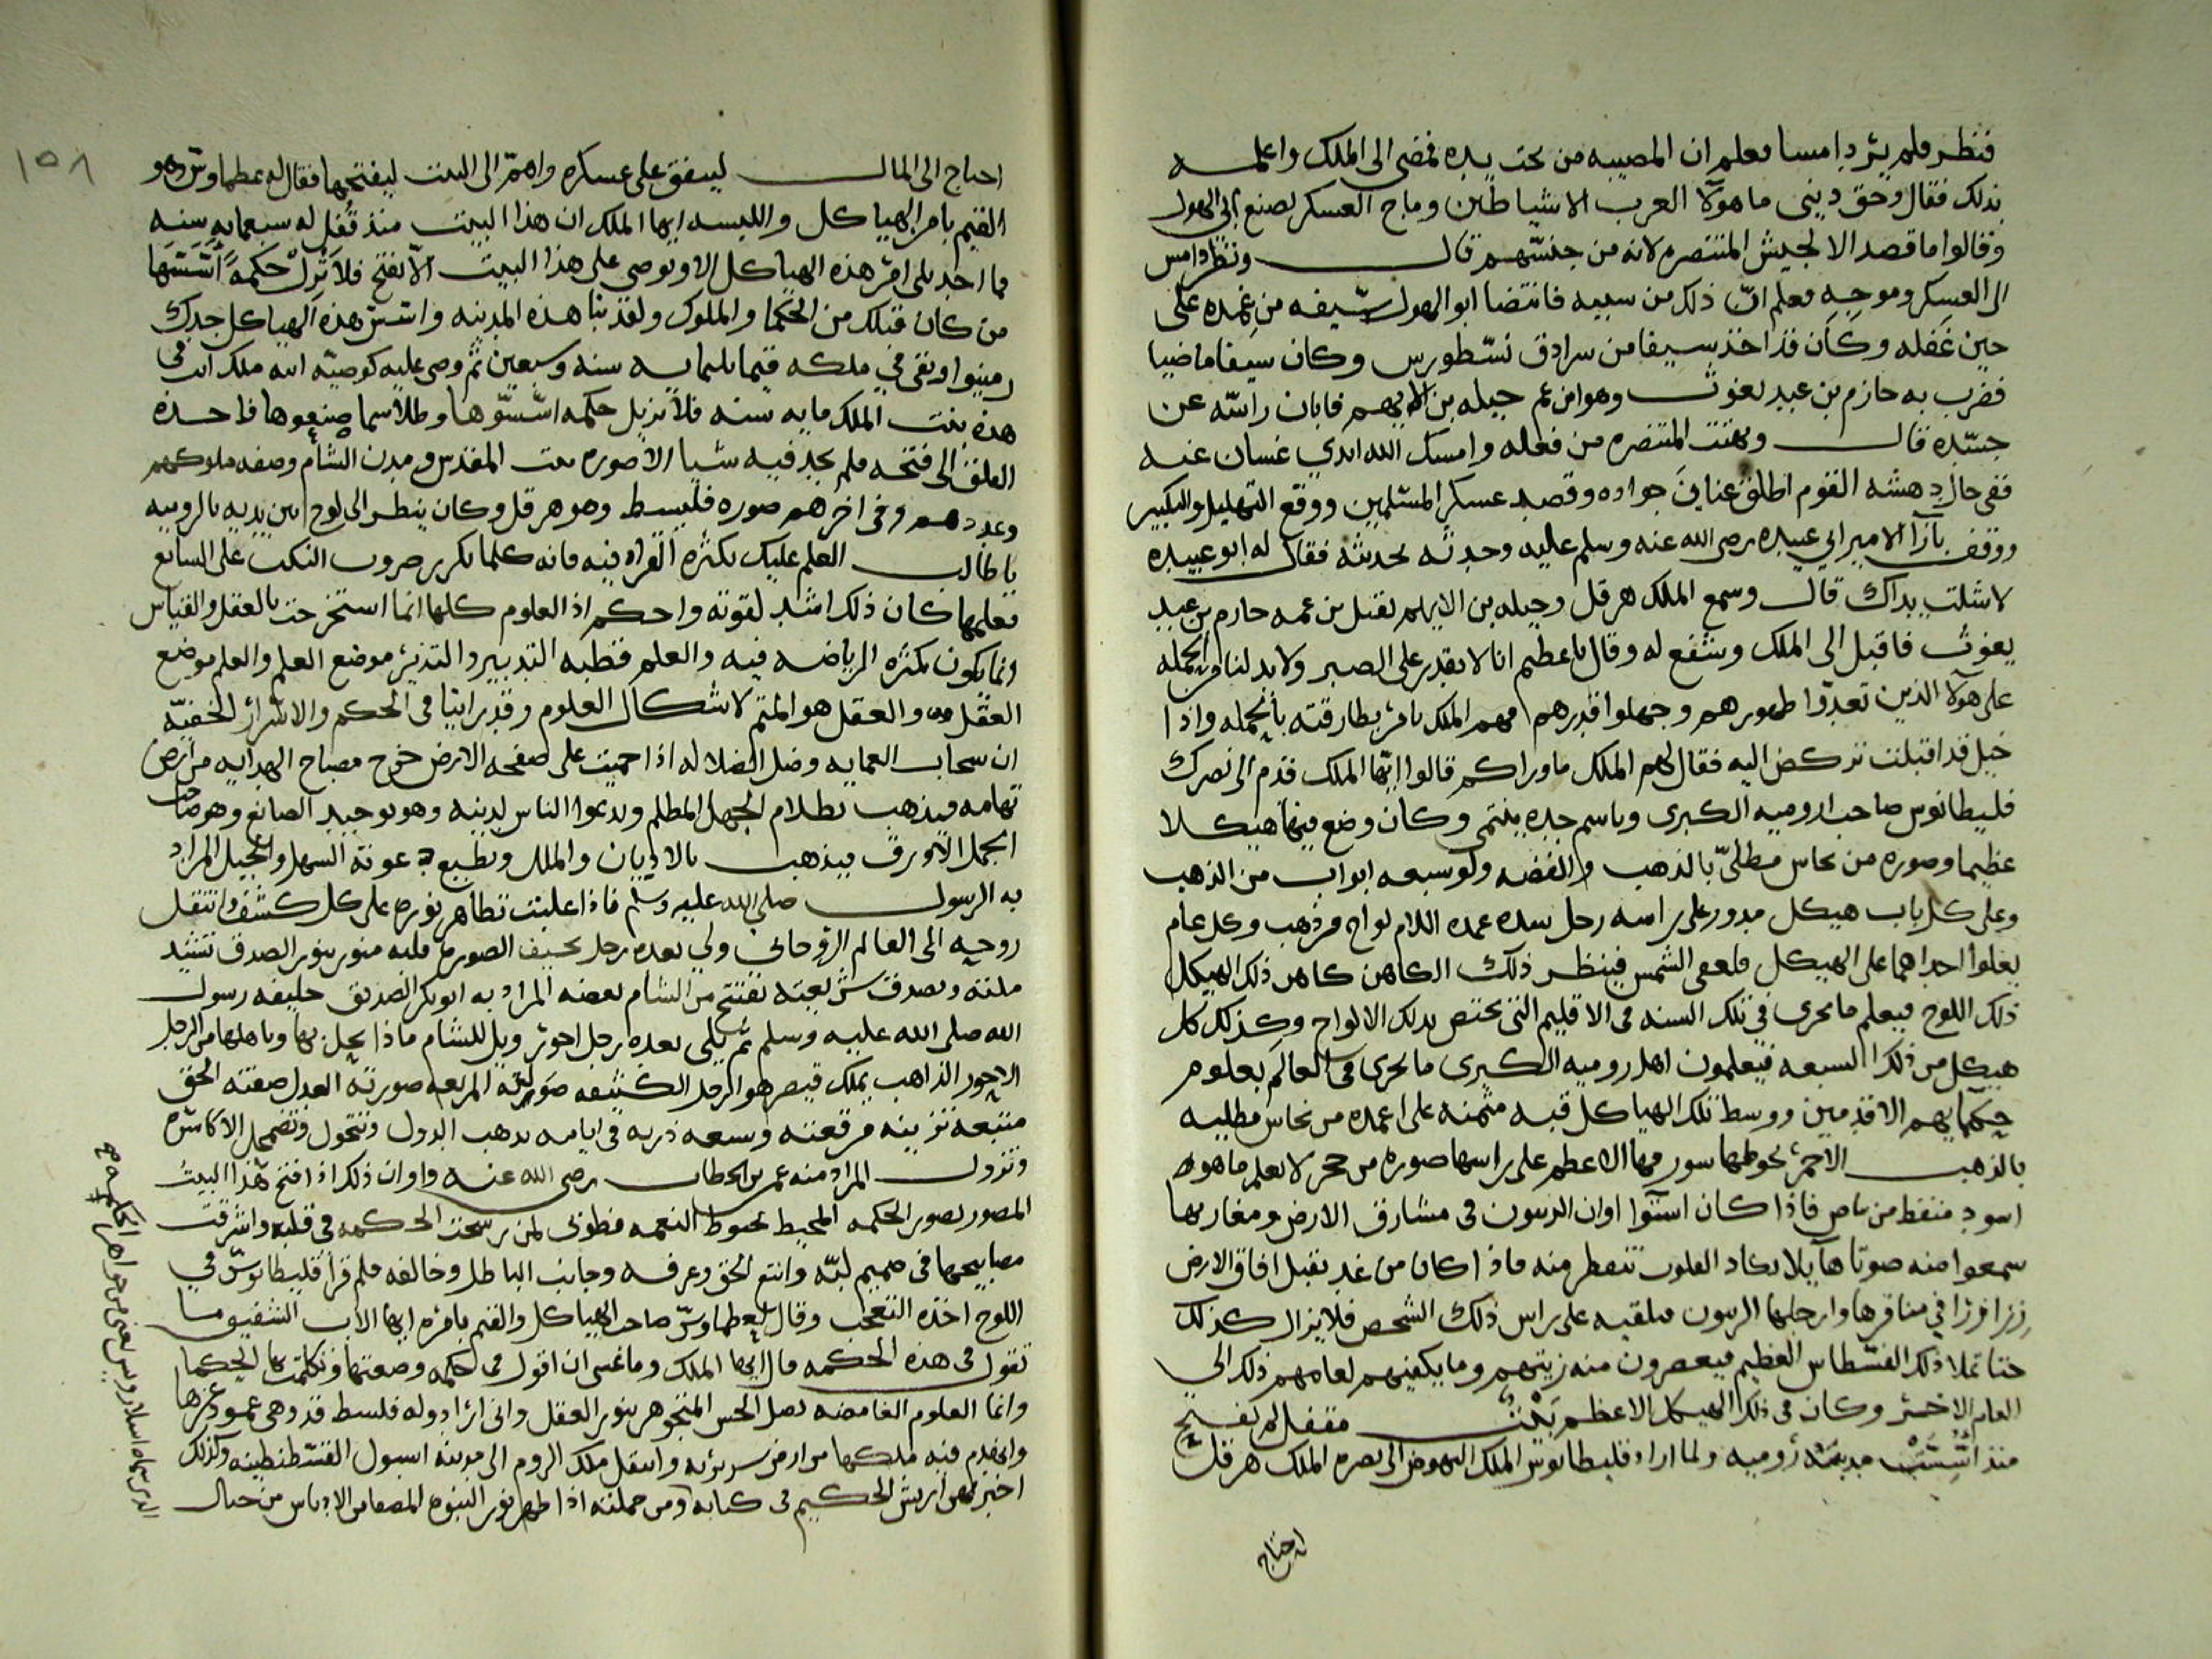 فنظر فلم ير دامسا فعلم ان المصيبه من تحت يده فمضى الى الملك واعلمه
بذلك فقال وحق ديني ما هولآ العرب الا شياطين وماج العسكر لصنع ابى الهول
وقالوا ما قصد الا لجيش المتنصره لانه من جنسهم قال ونظر دامس
الى العسكر وموجه فعلم ان ذلك من سببه فانتضا ابو الهول سيفه من غمده على
حين غفله وكان قد اخذ سيفا من سرادق نسطورس وكان سيفا ماضيا
فضرب به حازم بن عبد يغوث وهو ابن عم جبله بن الايهم فابان راسه عن
جسده قال وبهتت المتنصره من فعله وامسك الله ايدي غسان عنه
ففى حال دهشه القوم اطلق عنان جواده وقصد عسكر المسلمين ووقع التهليل والتكبير
ووقف بازآ الامير ابي عبيده رضى الله عنه وسلم عليه وحدثه بحديثه فقال له ابو عبيده
لا شلت يداك قال وسمع الملك هرقل وجبله بن الايهم بقتل بن عمه حازم بن عبد
يغوث فاقبل الى الملك وشفع له وقال يا عظيم انا لا نقدر على الصبر ولا بد لنا من الحمله
على هولآ الذين تعدوا طورهم وجهلوا قدرهم فهم الملك يامر بطارقته بالحمله واذا
خيل قد اقبلت تركض اليه فقال لهم الملك ما وراكم قالوا ايها الملك قدم الى نصرك
فليطانوس صاحب روميه الكبرى وباسم جده ينتمى وكان وضع فيها هيكلا
عظيما وصوره من نحاس مطلى بالذهب والفضه وله سبعه ابواب من الذهب
وعلى كل باب هيكل مدور على راسه رجل بيده عمده الالواح من ذهب وكل عام
يعلوا احداهما على الهيكل الشمس فينظر ذلك الكاهن كاهن ذلك الهيكل
ذلك اللوح فيعلم ما يجرى في تلك السنه فى الاقليم التى تختص بتلك الالواح وكذلك كل
هيكل من ذلك السبعه فيعلمون اهل روميه الكبرى ما يجرى فى العالم بعلوم
حكمايهم الاقدمين ووسط تلك الهياكل قبه مثمنه على اعمده من نحاس مطليه
بالذهب الاحمر يحوطها سور فيها الاعظم على راسها صوره من حجر لا يعلم ما هو
اسود منقط من فاذا كان استوا اوان الزيتون فى مشارق الارض ومغاربها
سمعوا منه صوتا هآيلا تكاد القلوب تنفطر منه فاذا كان من غد تقبل افاق الارض
زرازرا في مناقرها وارجلها الزيتون فتلقيه على راس ذلك الشخص فلا يزال كذلك
حتا تملا ذلك الفسطاس العظيم فيعصرون منه زيتهم وما يكفيهم لعامهم ذلك الى
العام الاخر وكان فى ذلك الهيكل الاعظم بيت مقفل لم يفتح
منذ اسست مدينه روميه ولما اراد فليطانوس الملك النهوض الى نصره الملك هرقل
احتاج
١٥٨
احتاج الى المال لينفق على عسكره واهم الى البيت ليفتحها فقال له عطماوس وهو
القيم بامر الهياكل والبيسه ايها الملك ان هذا البيت منذ قفل له سبعمايه سنه
فما احد يلى امر هذه الهياكل الا ويوصى على هذا البيت الا يفتح فلا تزل حكمة اسسها
من كان قبلك من الحكما والملوك ولقد بنا هذه المدينه واسس هذه الهياكل جدك
رمينوا وبقى في ملكه فيها ثلثمايه سنه وسبعين ثم وصى عليه كوصيه ابيه ملك ابيه فى
هذه بيت الملك مايه سنه فلا تزيل حكمه اسسوها وطلاسما صنعوها فاخذه
القلق الى فتحه فلم يجد فيه شيا الا صوره بيت المقدس ومدن الشام وصفه ملوكهم
وعددهم وفى اخرهم صوره فليسط وهو هرقل وكان ينظر الى لوح بين يديه بالروميه
يا طالب العلم عليك بكثره القراه فيه فانه كلما تكرر صروب النكت على السامع
تعلمها كان ذلك اشد لقوته واحكم اذ العلوم كلها انما استخرجت بالعقل والقياس
وانما يكون بكثره الرياضه فيه والعلم قطبه التدبير والتدبير موضع العلم والعلم موضع
العقل والعقل هو المتم لاشكال العلوم وقد راينا فى الحكم والاسرار الخفيه
ان سحاب العمايه وضل الضلاله اذا حميت على صفحه الارض خرج مصباح الهدايه من ارض
تهامه فيذهب بظلام الجهل المظلم ويدعوا الناس لدينه وهو توحيد الصانع وهو صاحب
الجمل الاورق فيذهب بالاديان والملل وتطيع دعوته السهل والجبل المراد
به الرسول صلى الله عليه وسلم فاذا علنت تظاهر نوره على كل كشف وانتقل
روحه الى العالم الروحانى ولي بعده رجل نحيف الصوره قلبه منور بنور الصدق تشيد
ملته وتصدق شريعته تفتح من الشام بعضه المراد به ابو بكر الصديق خليفه رسول
الله صلى الله عليه وسلم ثم يلى بعده رجل احور ويل للشام ماذا يحل بها وباهلها من الرجل
الاحور الذاهب بملك قيصر هو الرجل الكثيفه صورته المربعه صورته العدل صفته الحق
متبعه تزينه مرقعته وسعه دربه فى ايامه تذهب الدول وتتحول وتضمحل الاكاسره
وتزول المراد منه عمر بن الخطاب رضى الله عنه واوان ذلك اذا فتح هذا البيت
المصور بصور الحكمه المحيط بحيوط النعمه فطوبى لمن رسخت الحكمه فى قلبه واشرقت
مصابيحها فى صميم لبه واتبع الحق وعرفه وجانب الباطل وخالفه فلم قرا فليطانوس في
اللوح اخذه التعجب وقال لعطماوس صاحب الهياكل والقيم بامره ايها الاب الشفيق ما
تقول فى هذه الحكمه قال ايها الملك وما عسى ان اقول فى حكمه وضعتها وتكلمت بها الحكما
وانما العلوم الغامضه يصل الحس المتجوهر بنور العقل وانى ارا دوله فلسط قد وهى عمود عزها
وانخدم فيه ملكها من ارض سوريه وانتقل ملك الروم الى مدينه اسبول القسطنطينيه وكذلك
اخبر مهراريش الحكيم فى كتابه ومن جملته اذا ظهر نور النبوه المصفا من الادناس من جبال